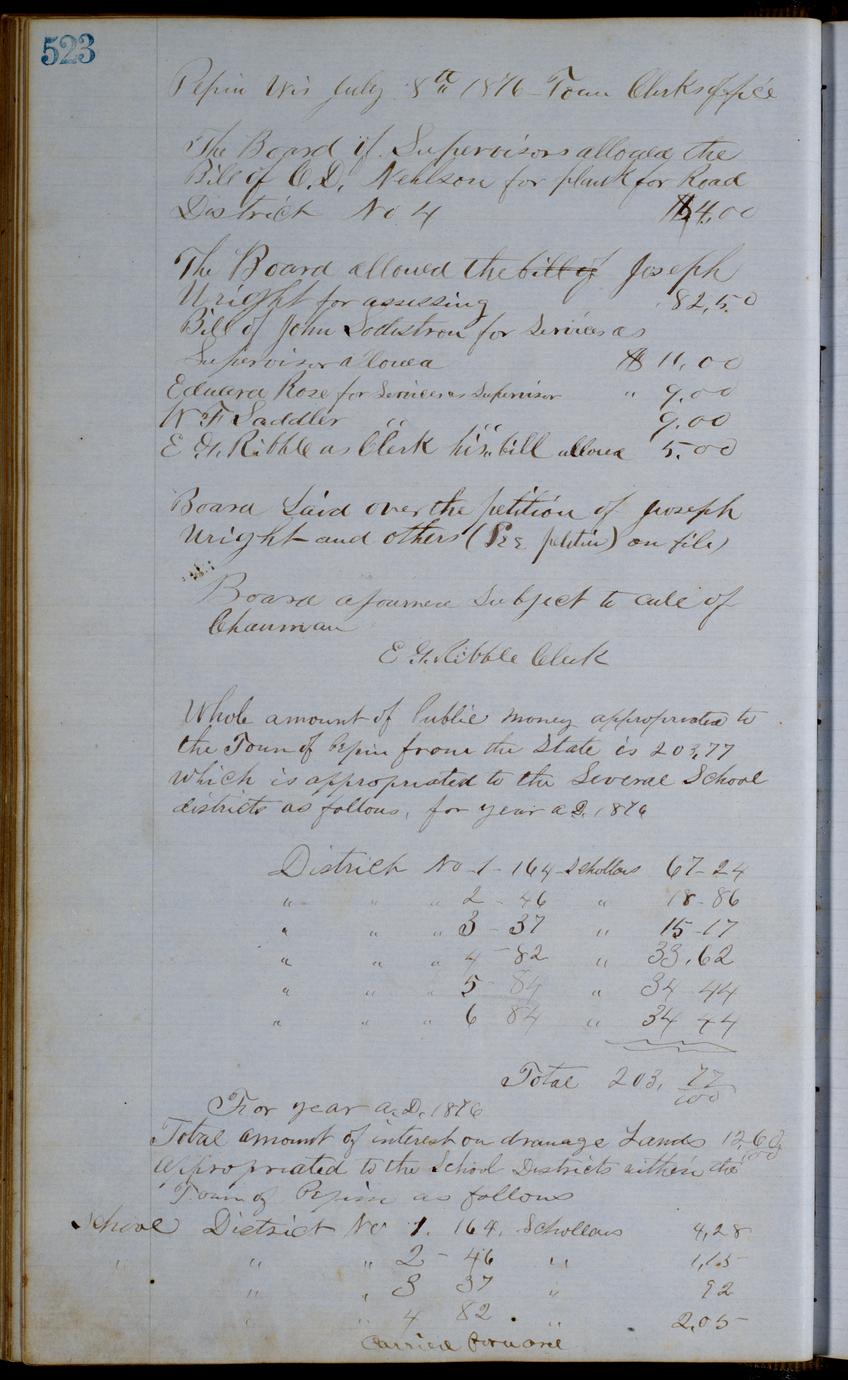 523
Pepin Wis July 8th 1876 Town Clerks office
The Board of Supervisors allowed the
Bill of O. D. for plank for Road
District No 4 4,00
The Board allowed the bill of Joseph
Wright for assessing 82,50
Bill of John for Services as
Supervisor allowed $ 11,00
Edward Rose for Services as Supervisor " 9,00
W F Saddler " " 9,00
E G. Ribble as Clerk his bill allowed 5,00
Board Laid over the petition of Joseph
Wright and others (See petition) on file)
Board ajourned Subject to call of
Chairman
E G. Ribble Clerk
Whole amount of Public money appropriated to
the Town of Pepin from the State is 203,77
which is appropriated to the Several School
districts as follows, for year A.D. 1876
District No 1 - 164 Schollars 67-24
" " " 2 - 46 " 18-86
" " " 3 - 37 " 15-17
" " " 4 - 82 " 33,62
" " " 5 84 " 34 44
" " " 6 84 " 34 44
Total 203, 77/100
For year A.D. 1876
Total amount of interest on dranage Lands 12,60/100
appropriated to the School Districts within the
Town of Pepin as follows
School District No 1. 164. Schollars 4,28
" " " 2 - 46 " 1,15
" " 3 37 " 92
" " 4 82 " 2,05
Carried forward